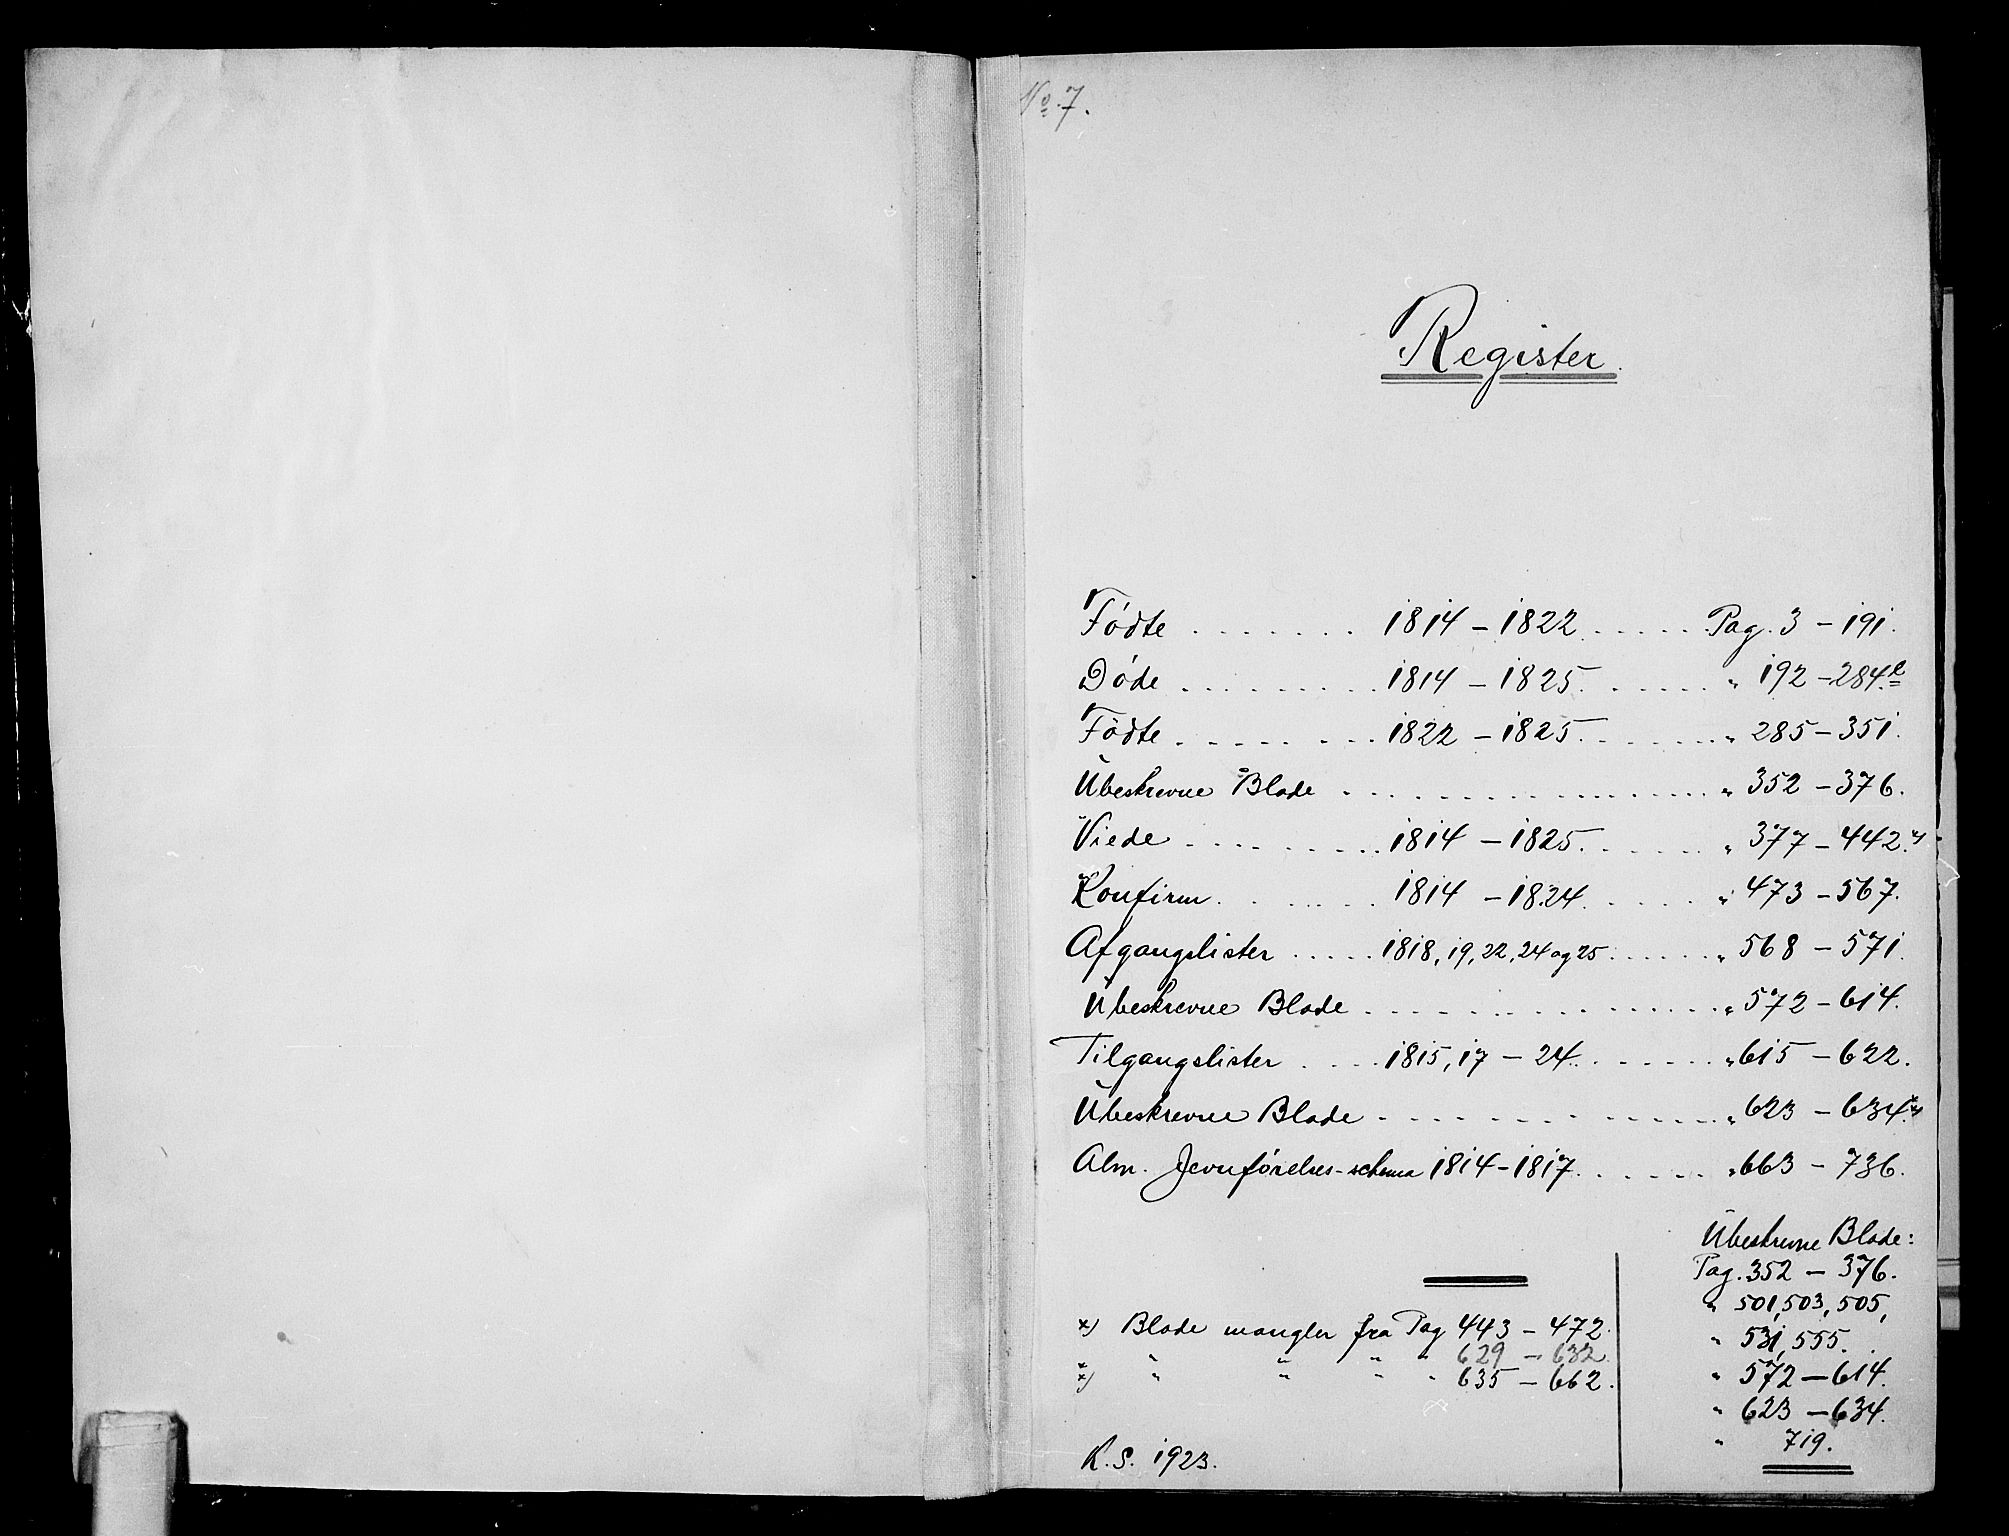 No. 7.
Register.
Fødte . . . . . . . 1814 – 1822 . . . . . Pag. 3 – 191.
Døde . . . . . . . . . 1814 – 1825 . . . . . . " 192 – 284.
Fødte . . . . . . . . 1822 – 1825 . . . . . . " 285 – 351.
Ubeskrevne Blade . . . . . . . . . . . . . . . " 352 – 376.
Viede . . . . . . . . . 1814 – 1825 . . . . . . " 377 – 442. x)
Konfirm . . . . . . . 1814 – 1824 . . . . . " 473 – 567.
Afgangslister . . . . . 1818, 19, 22, 24 og 25 . . . . . . " 568 – 571.
Ubeskrevne Blade . . . . . . . . . . . . . . . " 572 – 614.
Tilgangslister . . . . 1815, 17 – 24 . . . . . . " 615 – 622.
Ubeskrevne Blade . . . . . . . . . . . . . . . " 623 – 634. x)
Alm. Jevnførelses-schema 1814 – 1817 . . . . . . " 663 – 736.
x) Blade mangler fra Pag 443 – 472.
" " " " " 629 – 632.
x) " " " " 635 – 662.
K. S. 1923.
Ubeskrevne Blade:
Pag. 352 – 376.
" 501, 503, 505,
" 531, 555.
" 572 – 614.
" 623 – 634.
" 719.